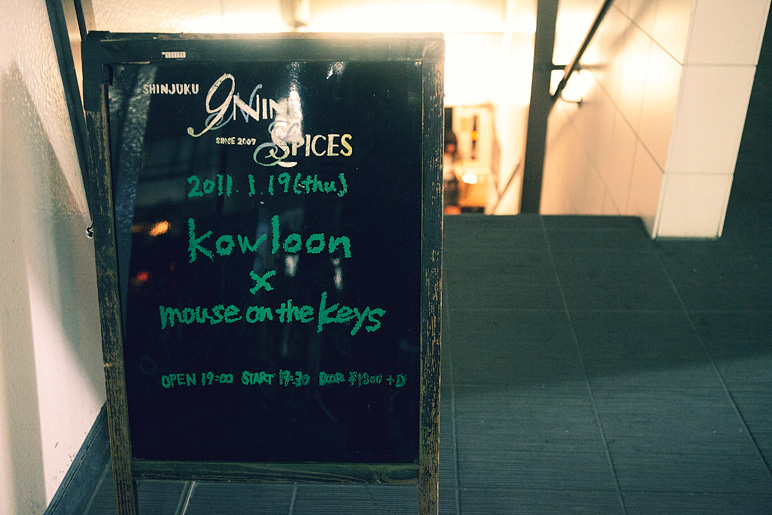 SHINJUKU
9NINE
SINCE 2007
SPICES
2011.1.19(thu)
kowloon
x
mouse on the keys
OPEN 19:00 START 19:30 DOOR +D